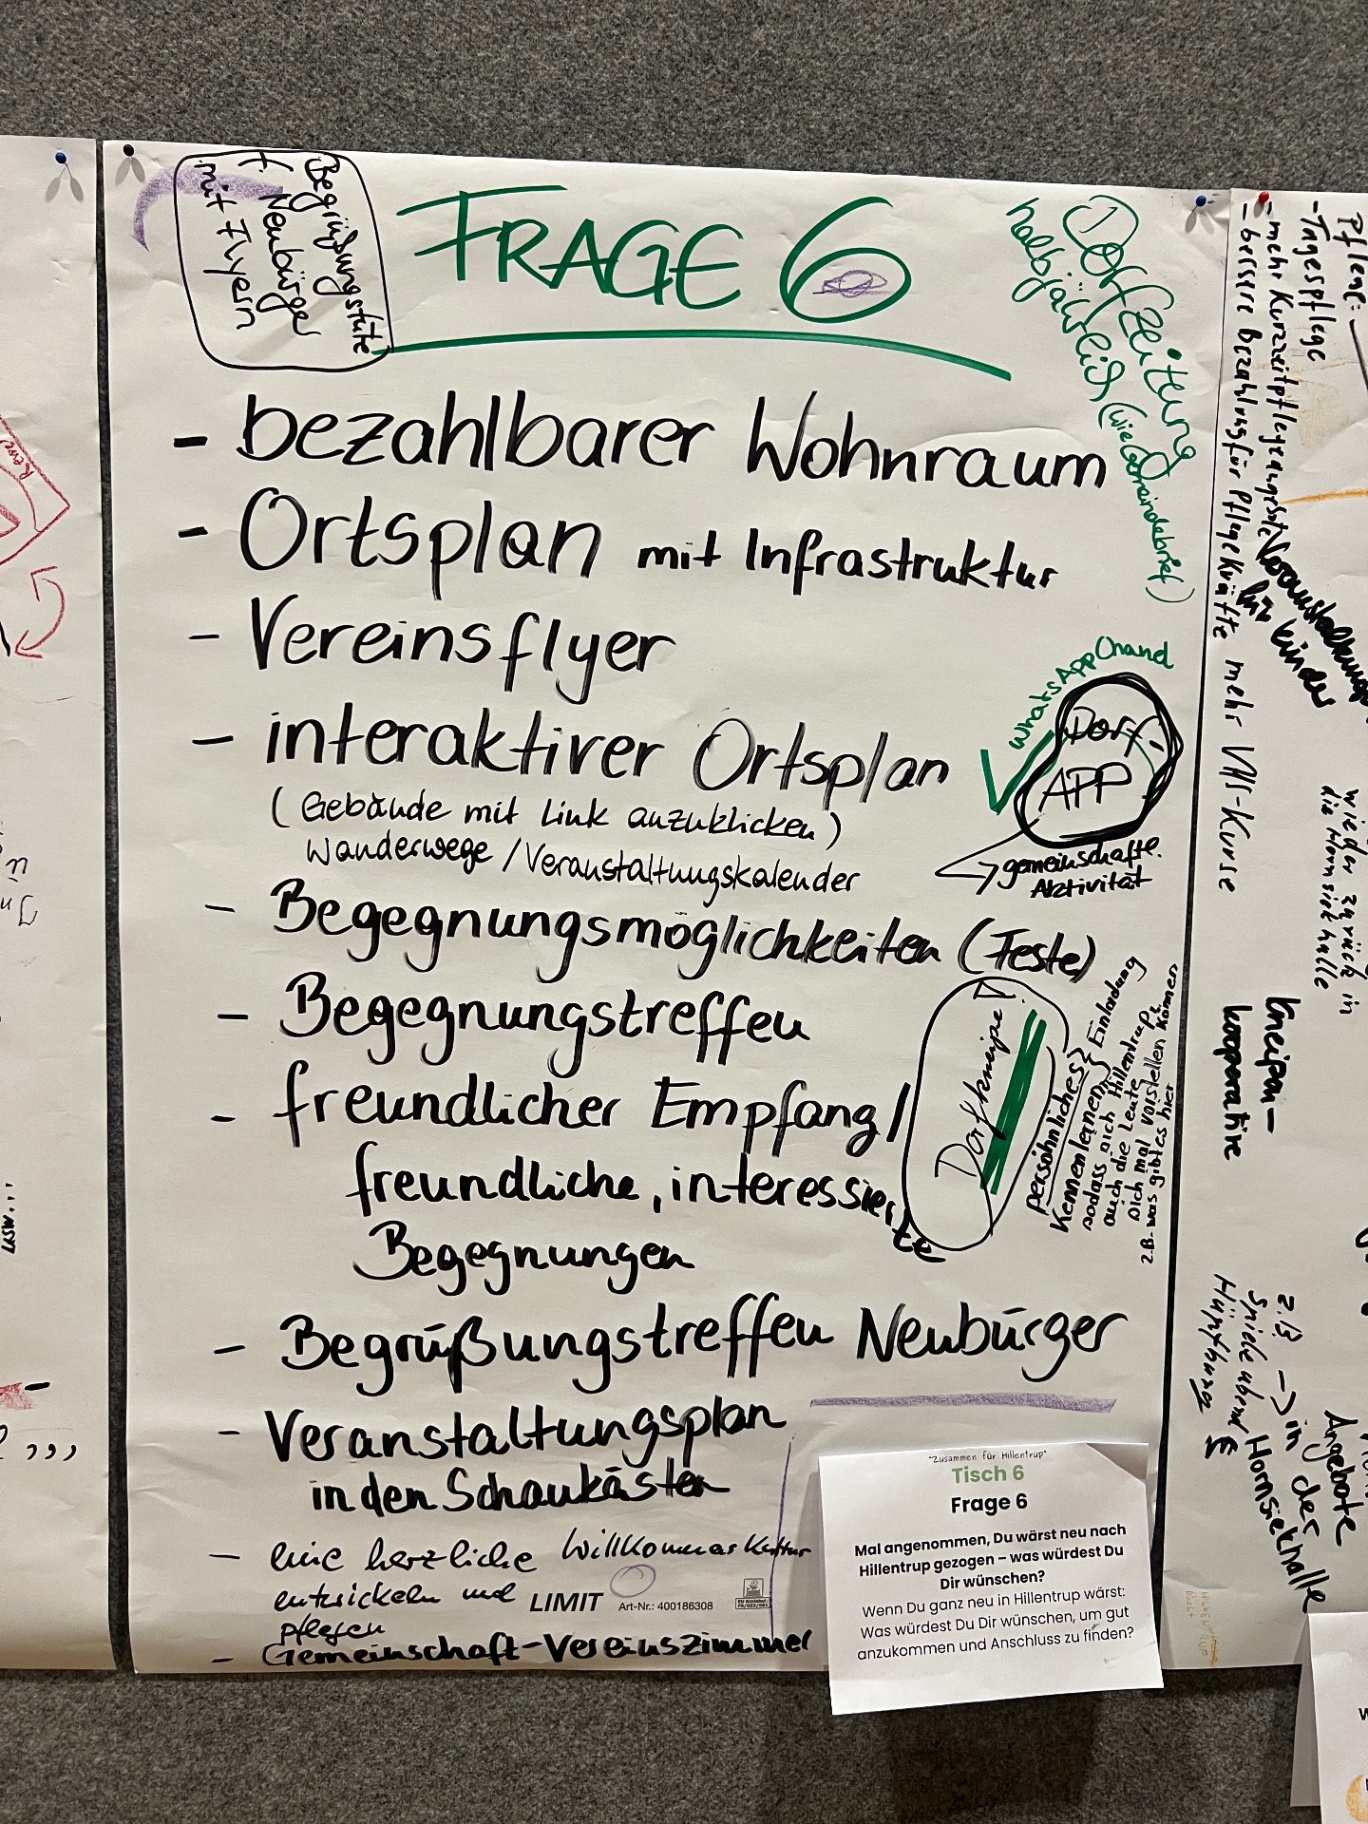 Begrüßungstüte
f. Neubürger
mit Flyern
FRAGE 6
Dorfzeitung
halbjährlich (wie Gemeindebrief)
- bezahlbarer Wohnraum
- Ortsplan mit Infrastruktur
- Vereinsflyer
- interaktiver Ortsplan
(Gebäude mit Link anzuklicken)
Wanderwege / Veranstaltungskalender
WhatsApp Chanel
Dorf-
APP
gemeinschafte.
Aktivität
- Begegnungsmöglichkeiten (Feste)
- Begegnungstreffen
- freundlicher Empfang /
freundliche, interessierte
Begegnungen
Dorfkneipe!
persöhnliches
Kennenlernen } Einladung
sodass sich Hillentrup,
auch die Leute
sich mal vorstellen können
z.B. was gibt es hier
- Begrüßungstreffen Neubürger
- Veranstaltungsplan
in den Schaukästen
- eine herzliche Willkommenskultur
entwickeln und
pflegen
- Gemeinschaft-Vereinszimmer
LIMIT Art-Nr.: 400186308
"Zusammen für Hillentrup"
Tisch 6
Frage 6
Mal angenommen, Du wärst neu nach
Hillentrup gezogen – was würdest Du
Dir wünschen?
Wenn Du ganz neu in Hillentrup wärst:
Was würdest Du Dir wünschen, um gut
anzukommen und Anschluss zu finden?
Pflege:
- Tagespflege
- mehr Kurzzeitpflegeangebote
- bessere Bezahlung für Pflegekräfte
Veranstaltungen
für Kinder
mehr VHS-Kurse
wieder zurück in
die Hornsiekhalle
Kneipen-
kooperative
z.B → in der
Spieleabend Hornsiekhalle
Hüpfburg
Angebote
usw...